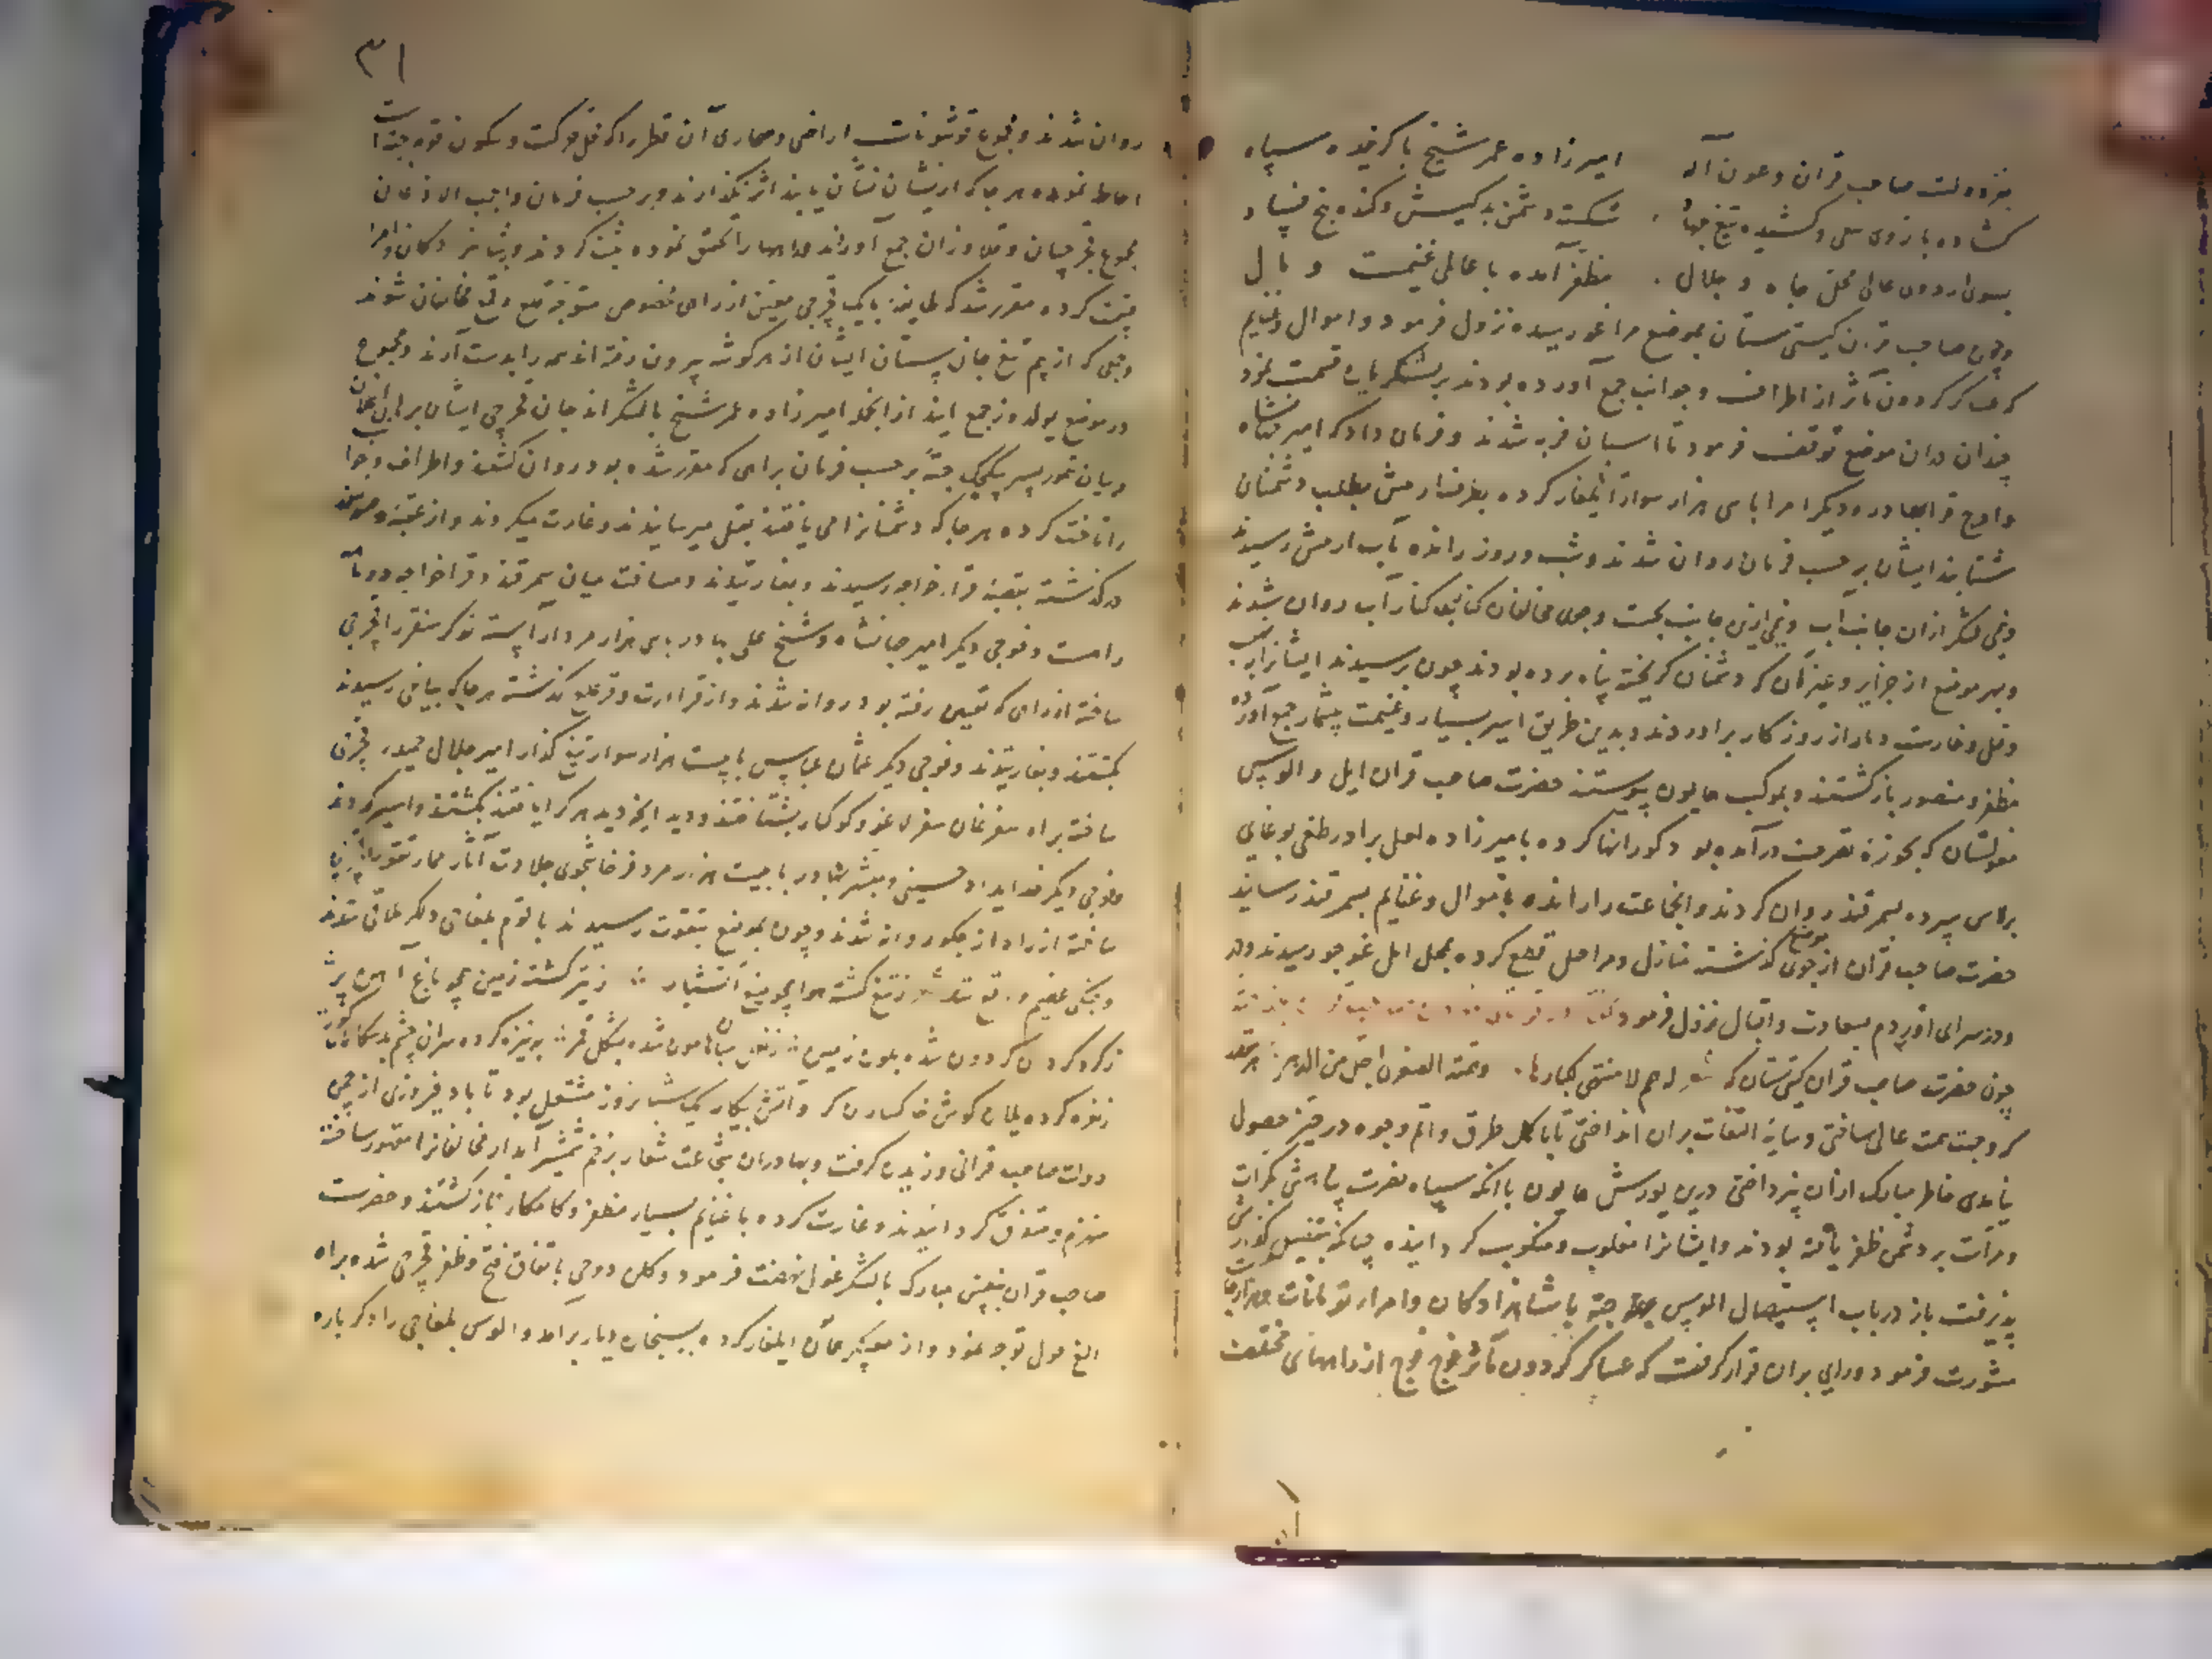 بفر دولت صاحب قران و عون آله امیرزاده عمر شیخ با کزیده سپاه
کشاده بازوی سعی و کشیده تیغ جهاد شکست دشمن بدکیش و کنده بیخ فساد
بسوی اردوی عالی محل جاه و جلال مظفر آمده با عالمی غنیمت و مال
و چون صاحب قران کیتی ستان بموضع مراغو رسیده نزول فرمود و اموال و غنایم
که عساکر کردون مآثر از اطراف و جوانب جمع آورده بودند بر لشکریان قسمت نمود
چندان دران موضع توقف فرمود تا اسبان فربه شدند و فرمان داد که امیر جهانشاه
و اوچ قرابهادر و دیکر امرا با سی هزار سوار ایلغار کرده بطرف ارتش بطلب دشمنان
شتابند ایشان بر حسب فرمان روان شدند و شب و روز رانده بآب ارتش رسیدند
و نیمی لشکر ازان جانب آب و نیمی ازین جانب بجست و جوی مخالفان کنار آب روان شدند
و بهر موضع از جزایر و غیر آن که دشمنان کریخته پناه برده بودند چون برسیدند ایشانرا
و قتل و غارت دمار از روزکار برآوردند و بدین طریق اسیر بسیار و غنیمت بیشمار جمع آورده
مظفر و منصور بازکشتند و بموکب همایون پیوستند حضرت صاحب قران ایل و الوس
مغولستان که بحوزه تصرف درآمده بود کوراتها کرده بامیرزاده لعل برادر طغی بوغای
برلاس سپرده بسمرقند روان کردند و انجماعت را رانده باموال و غنایم بسمرقند رسانید
حضرت صاحب قران از موضع کذشته منازل و مراحل قطع کرده بمحل ایل غوجور رسیدند و در
و در سرای اوردم بسعادت و اقبال نزول فرمود
چون حضرت صاحب قران کیتی ستان که شعر له همم لا منتهی لکبارها و همته الصغری اجل من الدهر
که وجهت همت عالی ساختی و سایه التفات بران انداختی تا با کمل طرق و اتم وجوه در حیز حصول
نیامدی خاطر مبارک ازان نپرداختی درین یورش همایون با آنکه سپاه نصرت پناهش بکرات
و مرات بر دشمن ظفر یافته بودند و ایشانرا مغلوب و منکوب کردانیده چنانکه بتفصیل کزارش
پذیرفت باز در باب استیصال الوس جته با شاهزادکان و امراء تومانات و هزارجات
مشورت فرمود و رای بران قرار کرفت که عساکر کردون مآثر فوج فوج از راههای مختلف
۳۱
روان شدند و مجموع قوشونات اراضی و صحاری آن قطر را که محل حرکت و سکون قوم جته است
احاطه نموده هر جا که از ایشان نشان یابند اثر نکذارند و بر حسب فرمان واجب الاذعان
مجموع قجرچیان و قلاوزان جمع آوردند و راهها را تحقیق نموده ثبت کردند و بشاهزادکان و امرا
قسمت کرده مقرر شد که هر طایفه با یک قجرچی معین از راهی مخصوص متوجه قلع و قمع مخالفان شوند
و جمعی که از بیم تیغ جان ستان ایشان از هر کوشه بیرون رفته اند همه را بدست آرند و مجموع
در موضع یولدوز جمع آیند از آنجمله امیرزاده عمر شیخ با لشکر اندجان قجرچی ایشان برهان اغلان
و بیان تمور پسر بیکیجک جته بر حسب فرمان براهی که مقرر شده بود روان کشتند و اطراف و جوانب
را تاخت کرده هر جا که دشمنانرا می یافتند بقتل میرسانیدند و غارت میکردند و از عقبه
درکذشته بقصبه قراخواجه رسیدند و بغارتیدند و مسافت میان سمرقند و قراخواجه
راهست و فوجی دیکر امیر جهانشاه و شیخ علی بهادر با سی هزار مرد آراسته
ساخته از راهی که تعیین رفته بود روانه شدند و از قراارت و قرغلع کذشته هر جا که بیاغی رسیدند
بکشتند و بغارتیدند و فوجی دیکر عثمان عباس با بیست هزار سوار تیغ کذار امیر جلال حمید قجرچی
ساخته براه بشتافتند هر که را یافتند بکشتند و اسیر کردند
و فوجی دیکر خدایداد حسینی و مبشر بهادر با بیست هزار مرد پرخاشجوی جلادت آثار
ساخته از راه روان شدند و چون بموضع رسیدند با قوم بلغاجی ملاقی شدند
و جنکی عظیم واقع شد شعر ز تیغ کشته هوا همچو میغ آتشبار ز تیر کشته زمین همچو باغ آهن بر
ز کرد کردون شده بلون زمین شده بشکل قمر بنیزه کرده سران چشم
زنعره کرده یلان کوش و آتش پیکار یک شبانروز مشتعل بود تا باد فیروزی از
دولت صاحب قرانی وزیدن کرفت و بهادران شجاعت شعار بزخم شمشیر آبدار مخالفانرا مقهور ساخته
منهزم و متفرق کردانیدند و غارت کرده با غنایم بسیار مظفر و کامکار بازکشتند و حضرت
صاحب قران بنفس مبارک با لشکر غول نهضت فرمود و باتفاق فتح و ظفر قجرچی شده براه
الغ قول توجه نمود و از ایلغار کرده برآمد و الوس بلغاجی را دکرباره